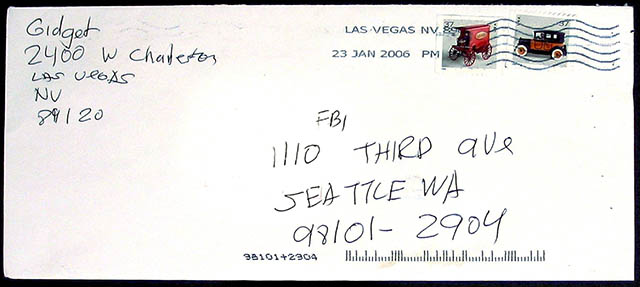 Gidget
2400 W Charleston
LAS VEGAS
NV
89120
LAS VEGAS NV 89
23 JAN 2006 PM
37
37
FBI
1110 THIRD ave
SEATTLE WA
98101-2904
98101+2904